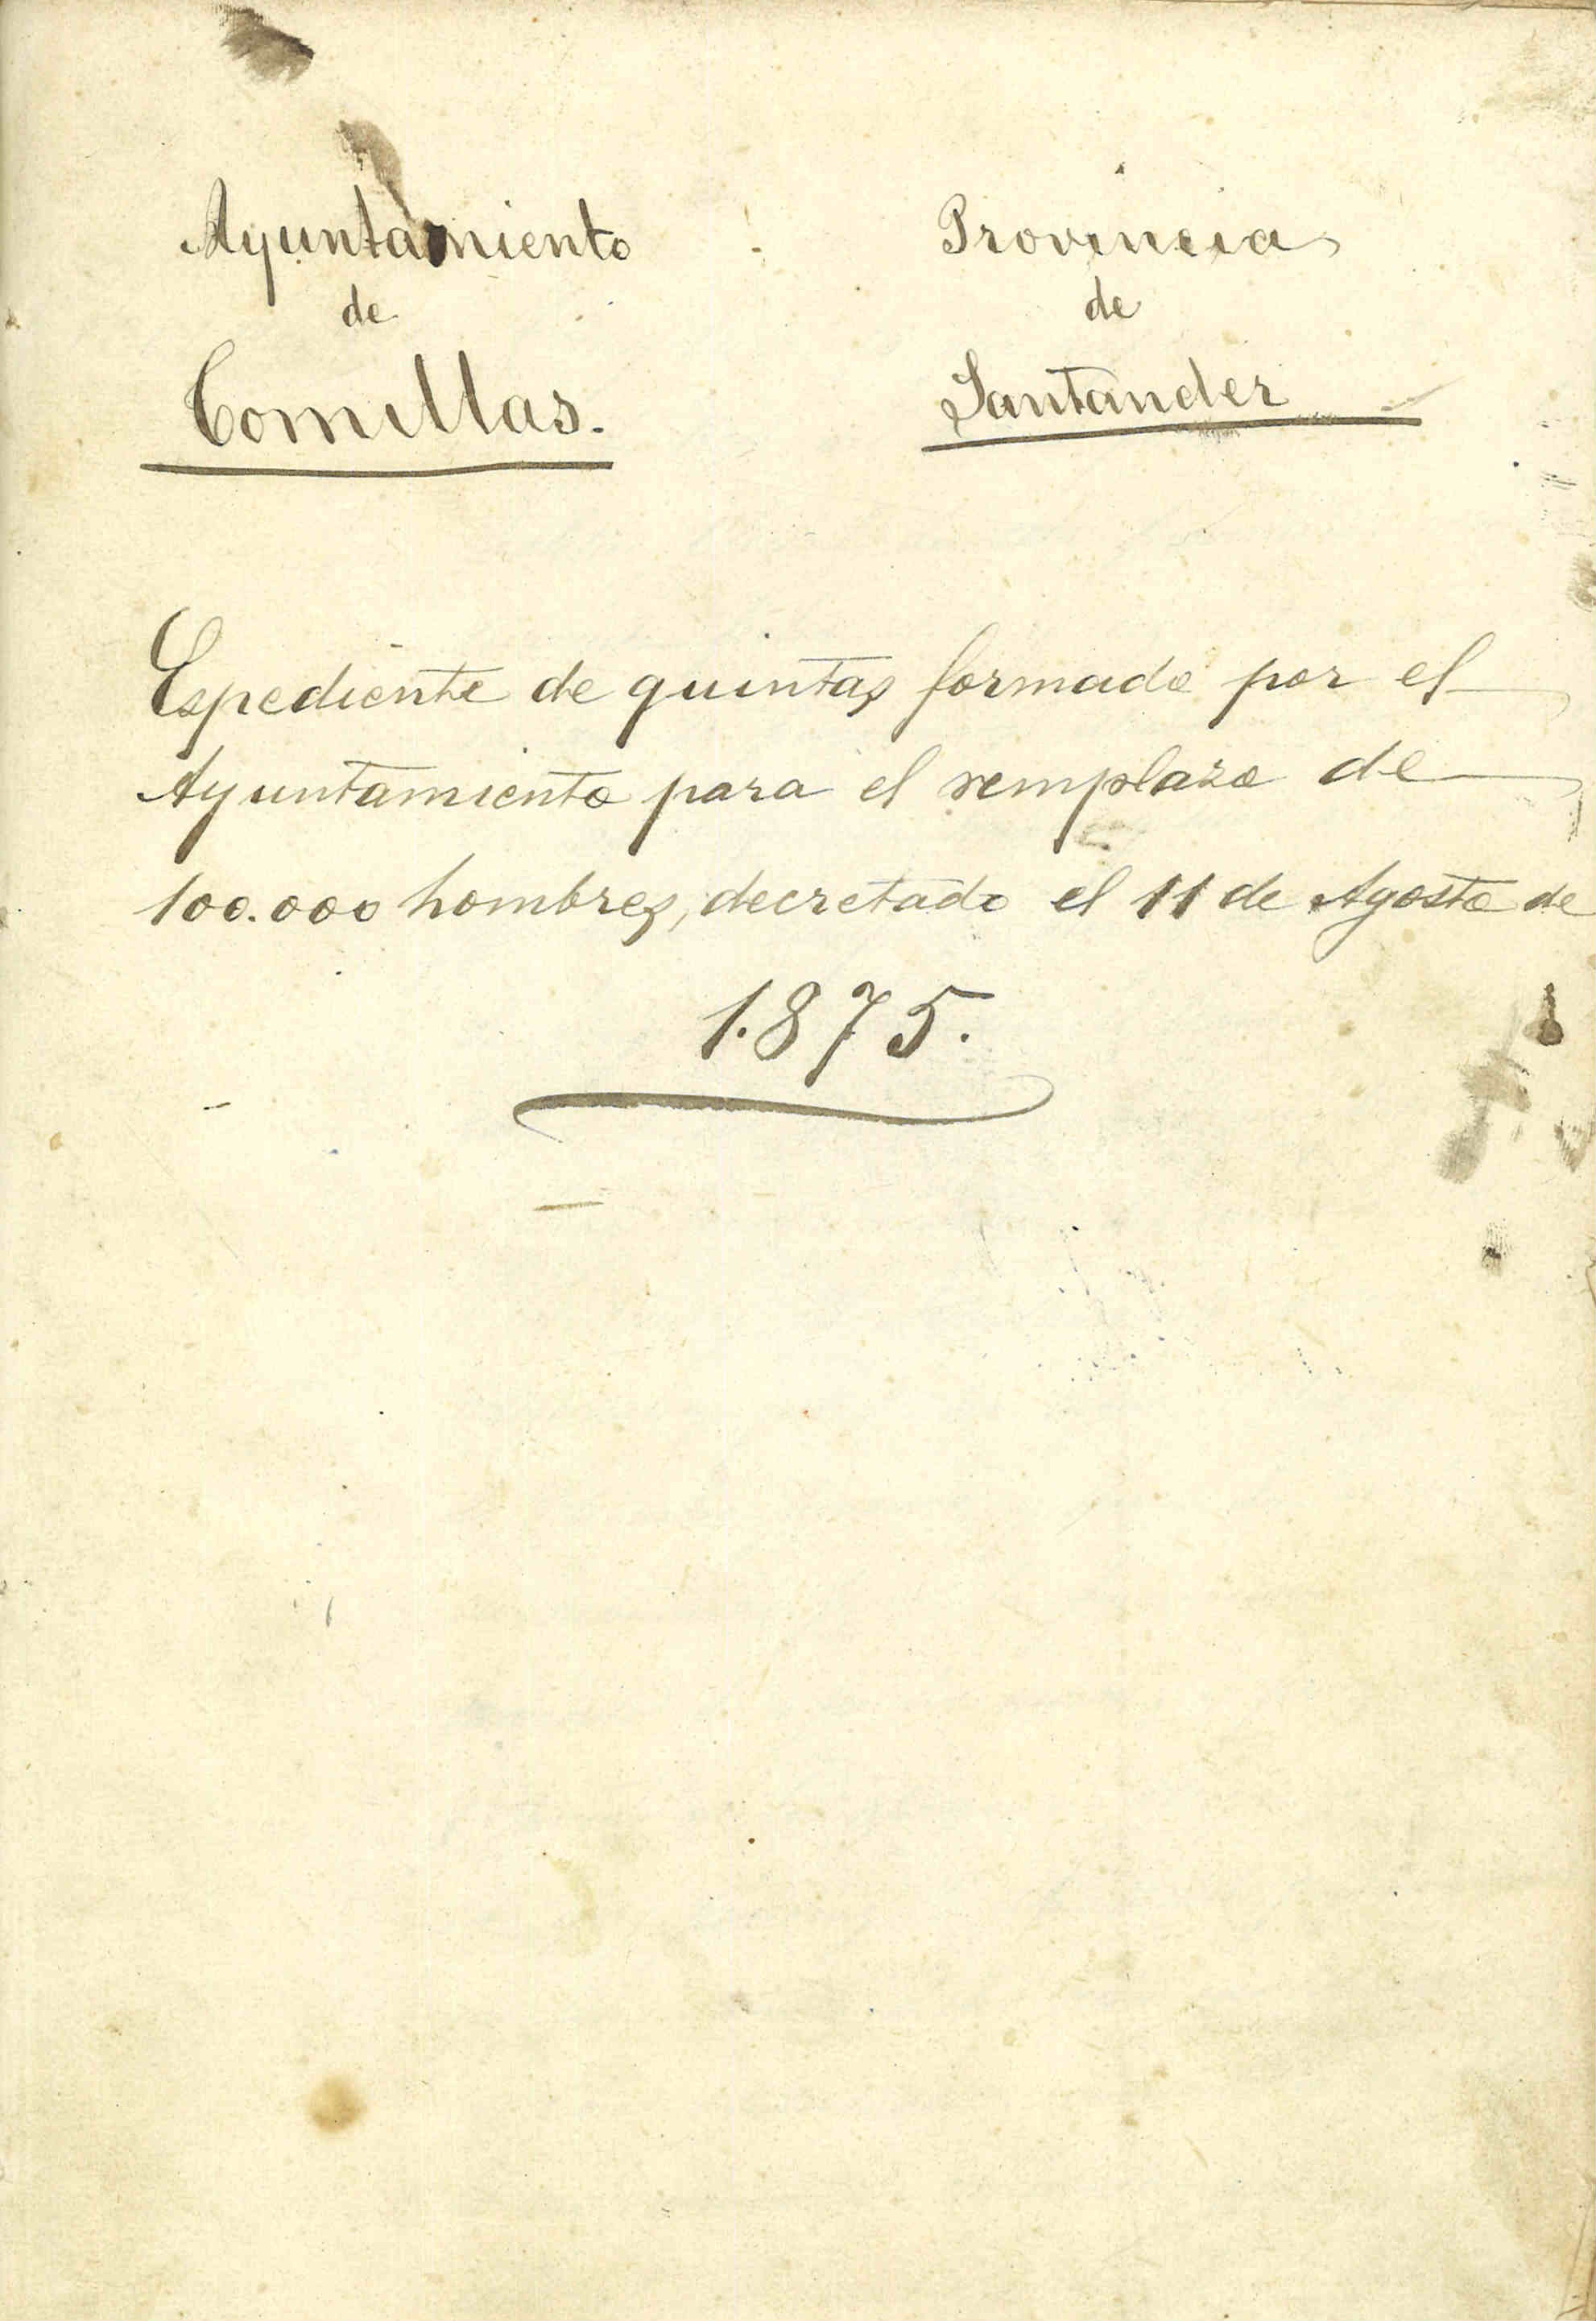 Ayuntamiento
de
Comillas.
Provincia
de
Santander
Espediente de quintas formado por el
Ayuntamiento para el remplazo de
100.000 hombres, decretado el 11 de Agosto de
1.875.